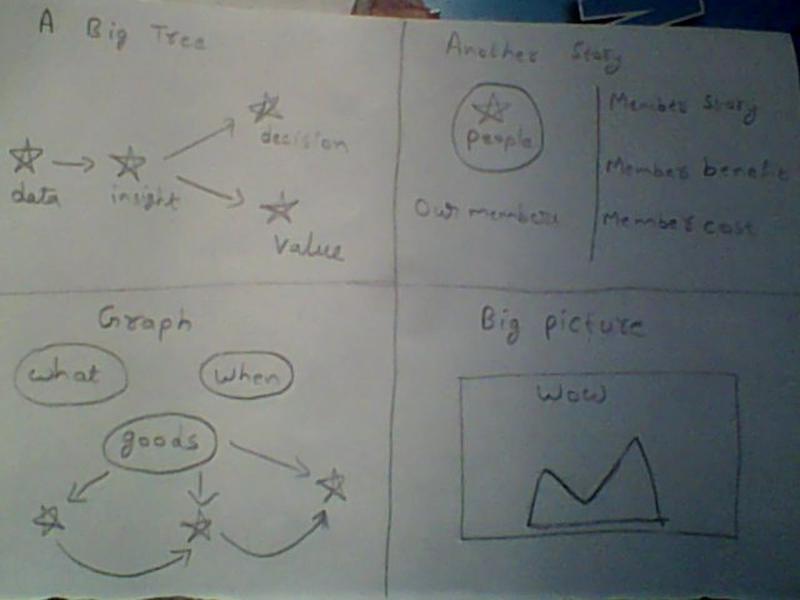 A Big Tree
decision
data
insight
value
Another Story
people
Our members
Member story
Member benefit
Member cost
Graph
what
when
goods
Big picture
WOW